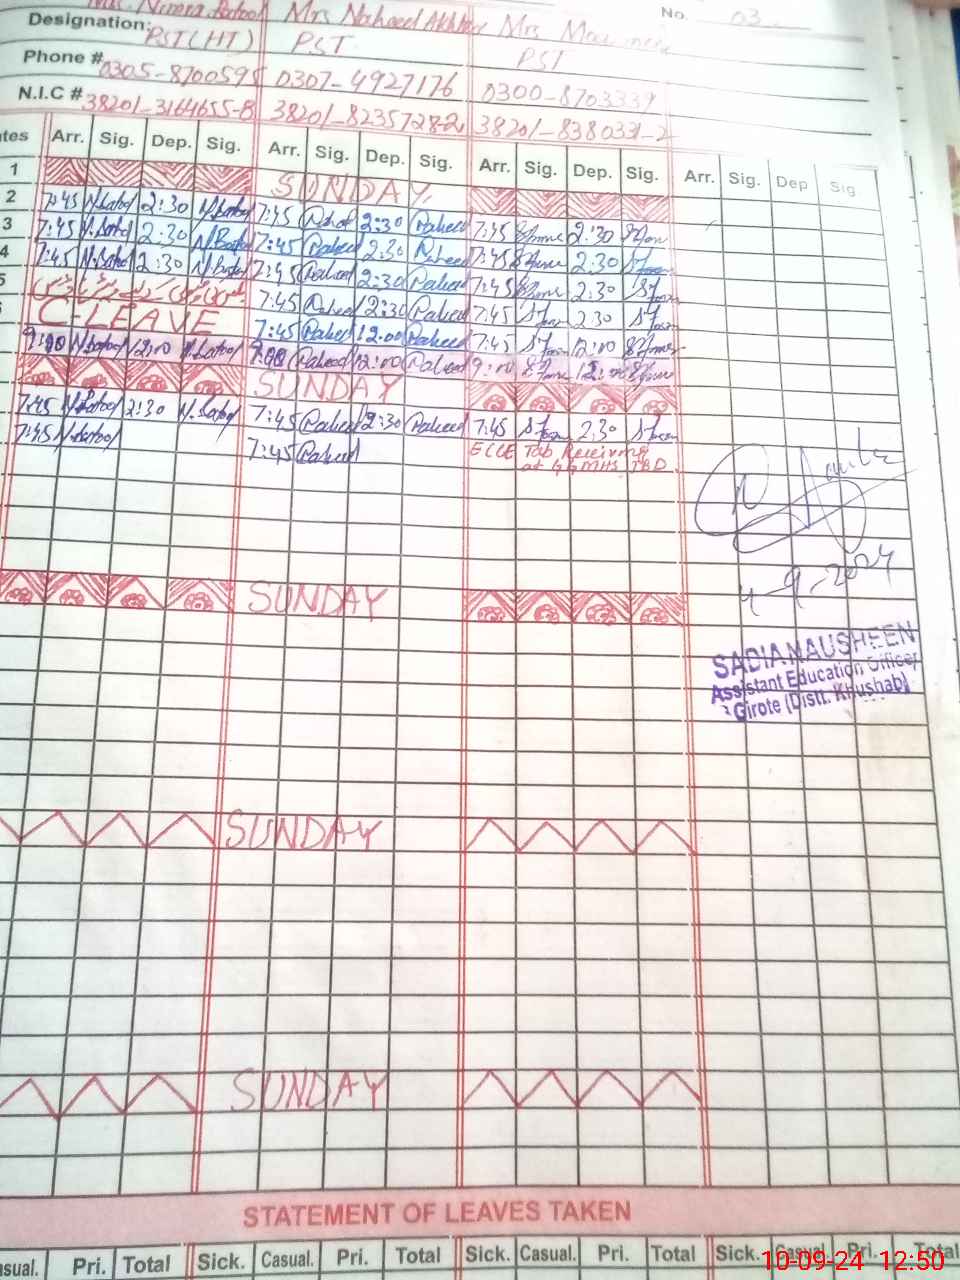 No. 03
Designation: PST(HT) PST PST
Mrs Naheed Akhtar Mrs
Phone # 0305-8700595 0307-4927176 0300-8703339
N.I.C # 38201-3164655-8 38201-8235728-2 38201-8380331-2
tes Arr. Sig. Dep. Sig. Arr. Sig. Dep. Sig. Arr. Sig. Dep. Sig. Arr. Sig. Dep Sig.
1 SUNDAY
2 7:45 N.Batool 2:30 N.Batool 7:45 Naheed 2:30 Naheed 7:45 2:30
3 7:45 N.Batool 2:30 N.Batool 7:45 Naheed 2:30 Naheed 7:45 2:30
4 7:45 N.Batool 2:30 N.Batool 7:45 Naheed 2:30 Naheed 7:45 2:30
5 7:45 Naheed 2:30 Naheed 7:45 2:30
C-LEAVE 7:45 Naheed 12:00 Naheed 7:45 12:00
9:00 N.Batool 12:00 N.Batool 9:00 Naheed 12:00 Naheed 9:00 12:00
SUNDAY
7:45 N.Batool 2:30 N.Batool 7:45 Naheed 2:30 Naheed 7:45 2:30
7:45 N.Batool 7:45 Naheed ECCE Tab Receiving
at GGMHS JBD
4-9-2024
SUNDAY
SADIA NAUSHEEN
Assistant Education Officer
Girote (Distt. Khushab)
SUNDAY
SUNDAY
STATEMENT OF LEAVES TAKEN
asual. Pri. Total Sick. Casual. Pri. Total Sick. Casual. Pri. Total Sick. Casual. Pri. Total
10-09-24 12:50